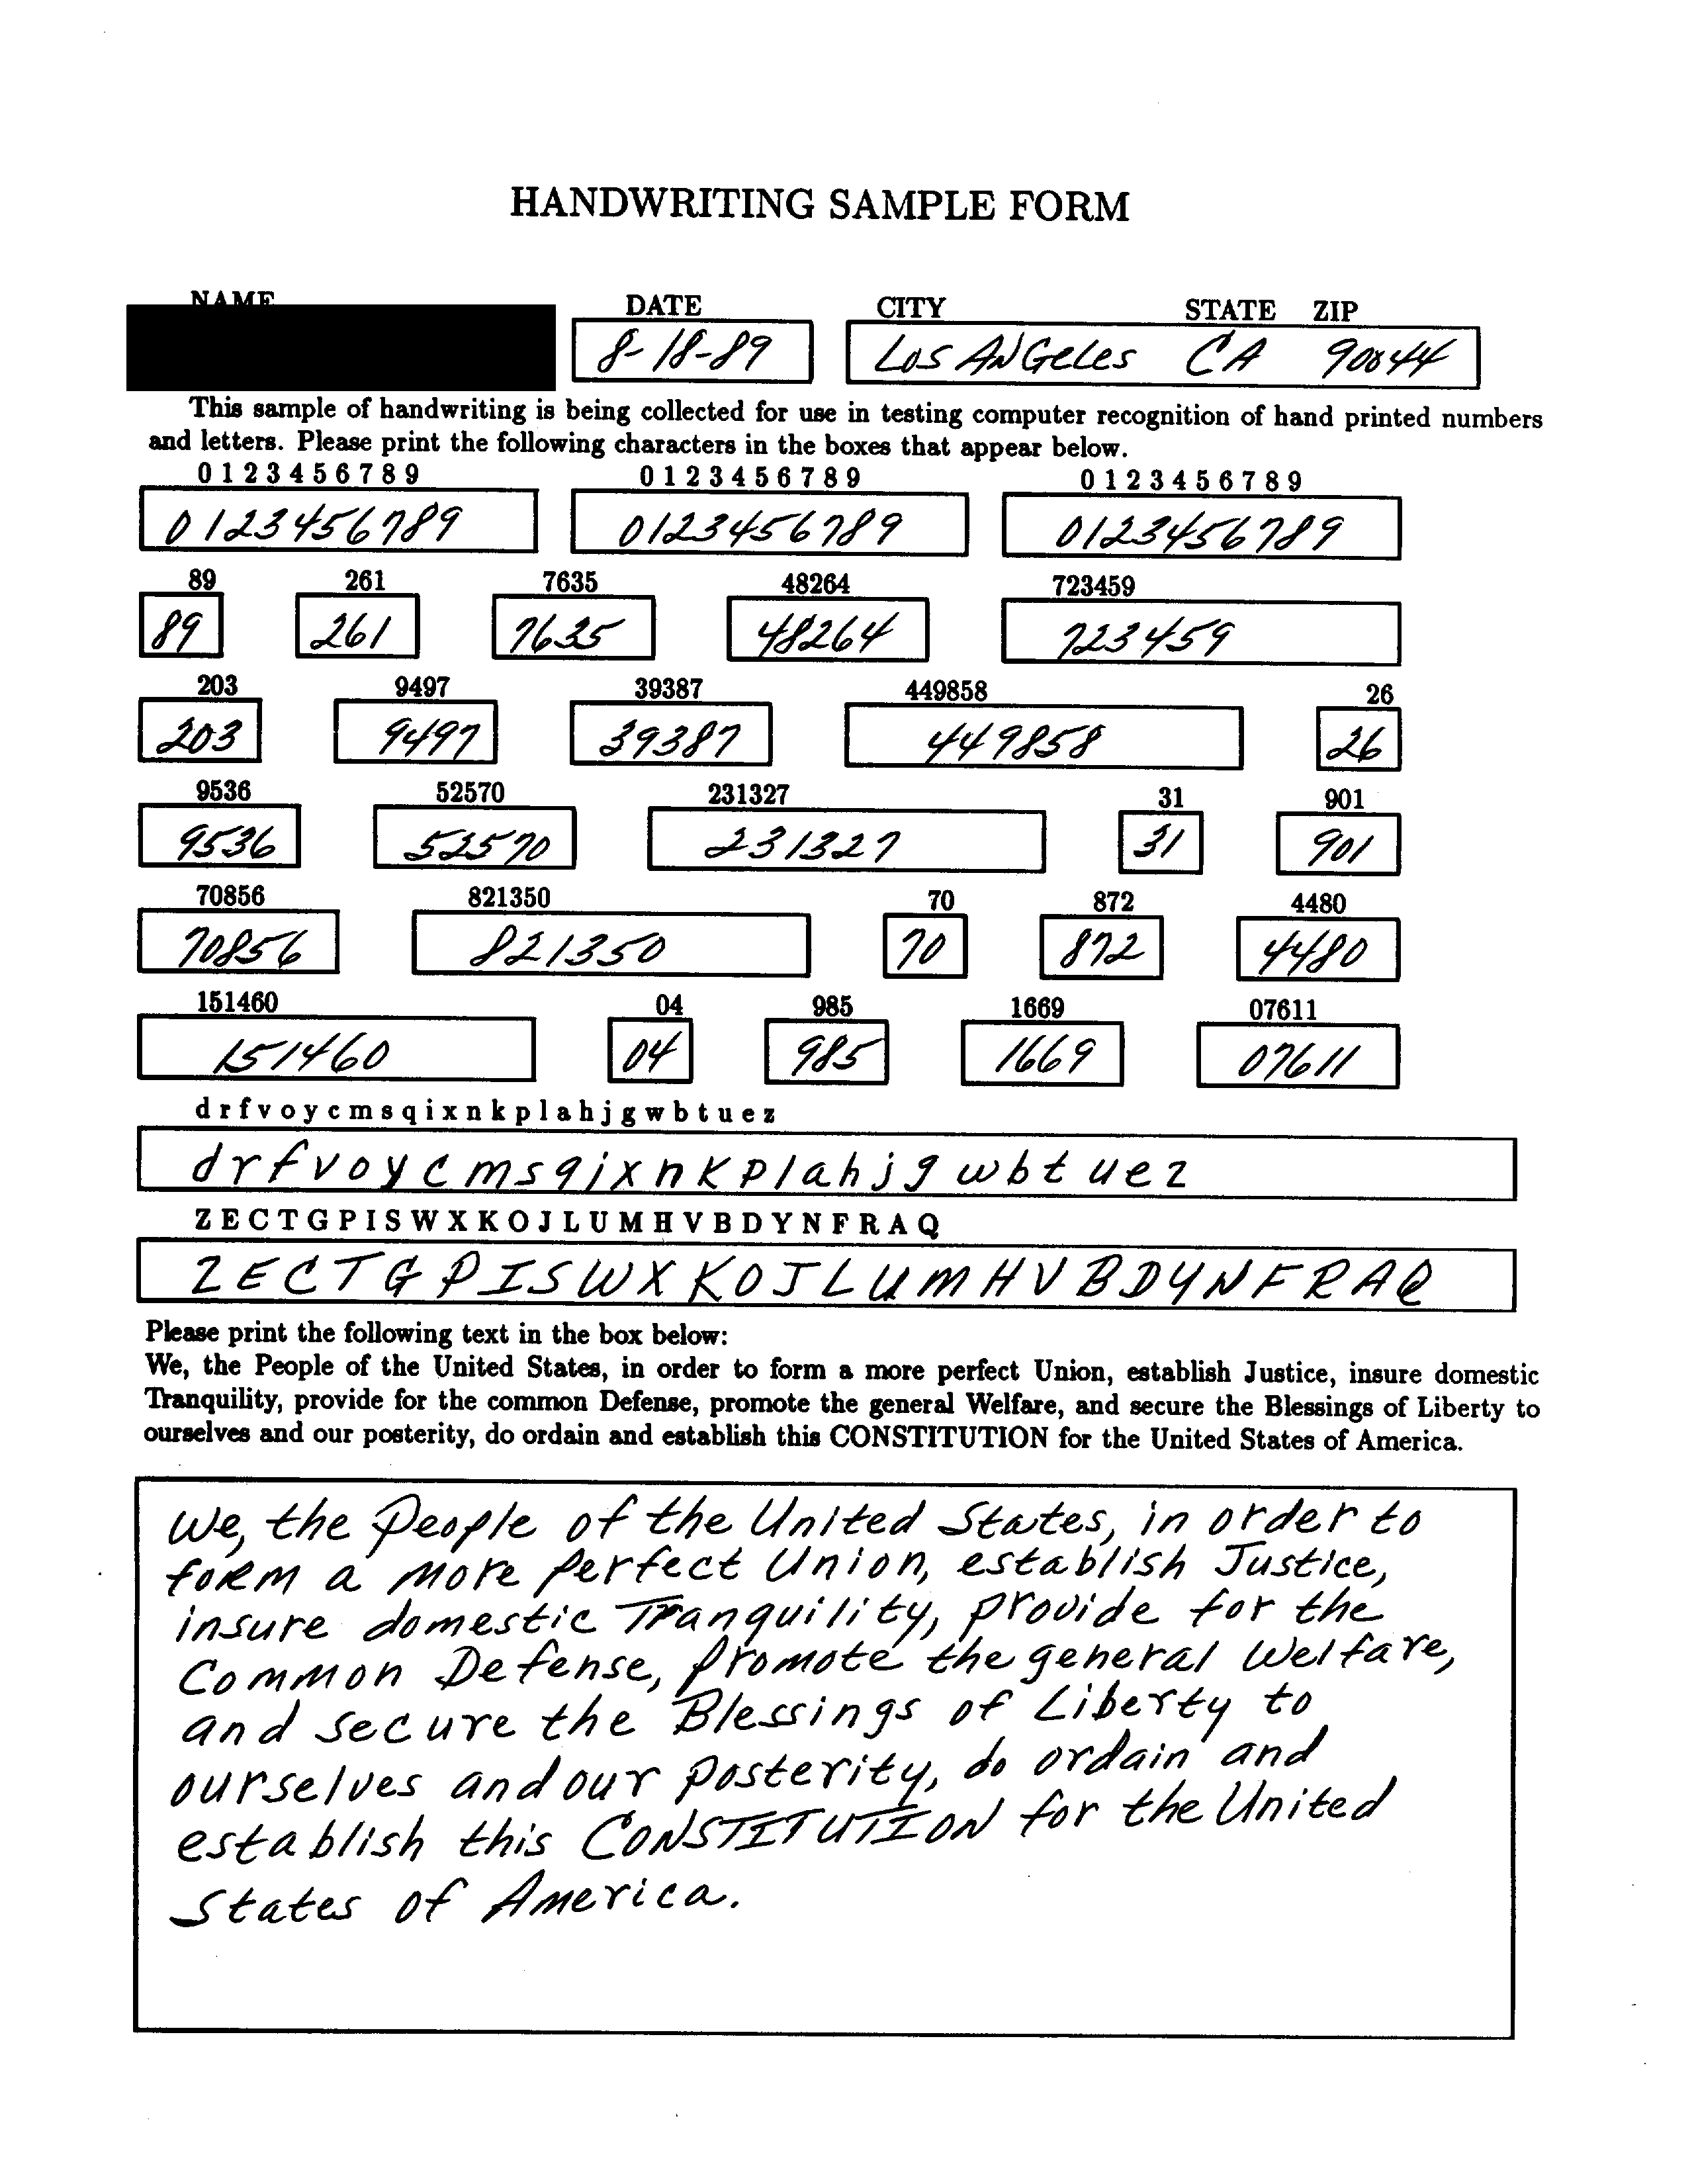 HANDWRITING SAMPLE FORM
NAME DATE CITY STATE ZIP
8-18-89 Los ANGeles CA 90044
This sample of handwriting is being collected for use in testing computer recognition of hand printed numbers
and letters. Please print the following characters in the boxes that appear below.
0 1 2 3 4 5 6 7 8 9 0 1 2 3 4 5 6 7 8 9 0 1 2 3 4 5 6 7 8 9
0123456789 0123456789 0123456789
89 261 7635 48264 723459
89 261 7635 48264 723459
203 9497 39387 449858 26
203 9497 39387 449858 26
9536 52570 231327 31 901
9536 52570 231327 31 901
70856 821350 70 872 4480
70856 821350 70 872 4480
151460 04 985 1669 07611
151460 04 985 1669 07611
d r f v o y c m s q i x n k p l a h j g w b t u e z
d r f v o y c m s q i x n k p l a h j g w b t u e z
Z E C T G P I S W X K O J L U M H V B D Y N F R A Q
Z E C T G P I S W X K O J L U M H V B D Y N F R A Q
Please print the following text in the box below:
We, the People of the United States, in order to form a more perfect Union, establish Justice, insure domestic
Tranquility, provide for the common Defense, promote the general Welfare, and secure the Blessings of Liberty to
ourselves and our posterity, do ordain and establish this CONSTITUTION for the United States of America.
We, the People of the United States, in order to
foRM a More perfect Union, establish Justice,
insure domestic Tranquility, provide for the
Common Defense, promote the general Welfare,
and secure the Blessings of Liberty to
ourselves and our posterity, do ordain and
establish this CONSTITUTION for the United
States of America.